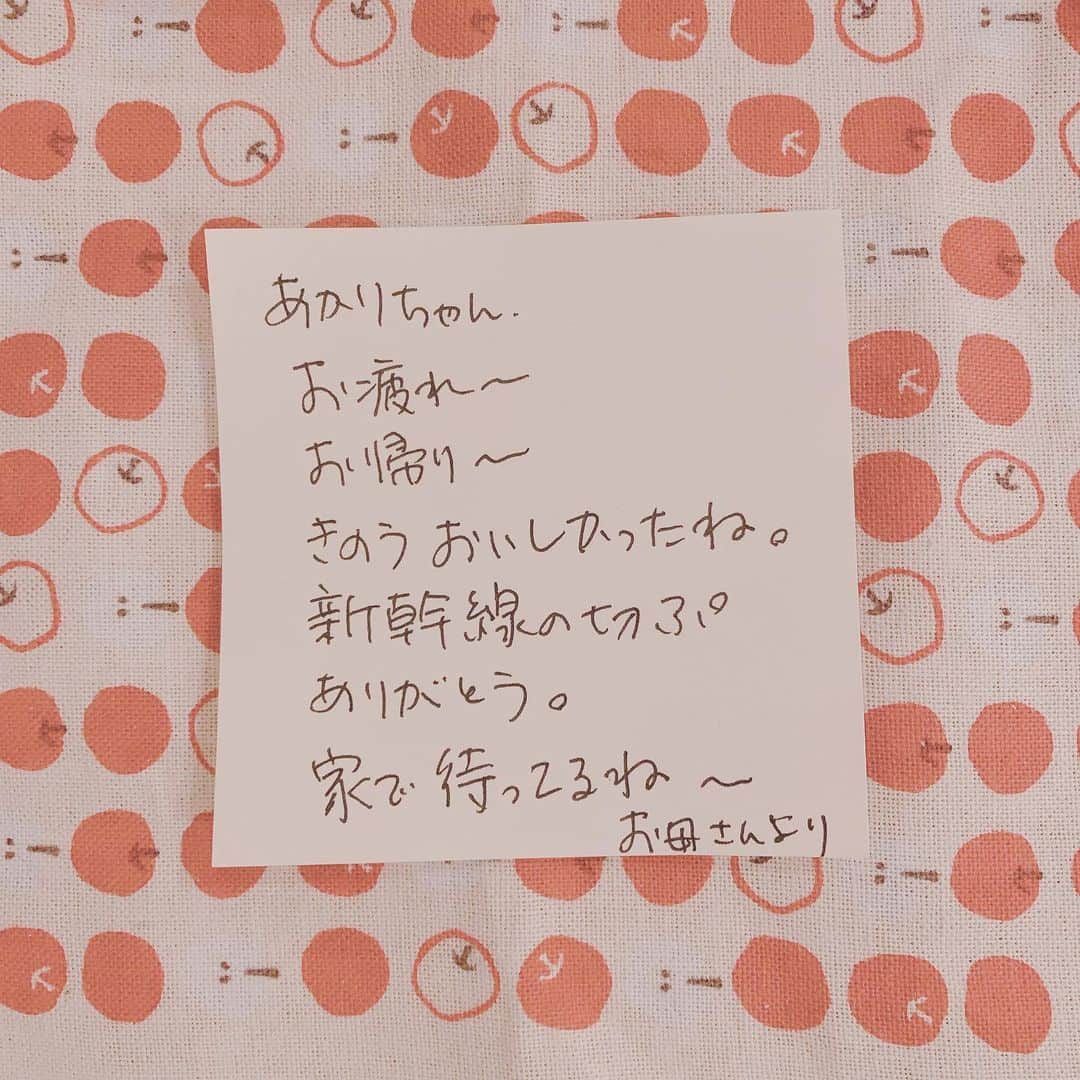 あかりちゃん.
お疲れ〜
お帰り〜
きのう おいしかったね。
新幹線の切ぷ
ありがとう。
家で待ってるね 〜
お母さんより